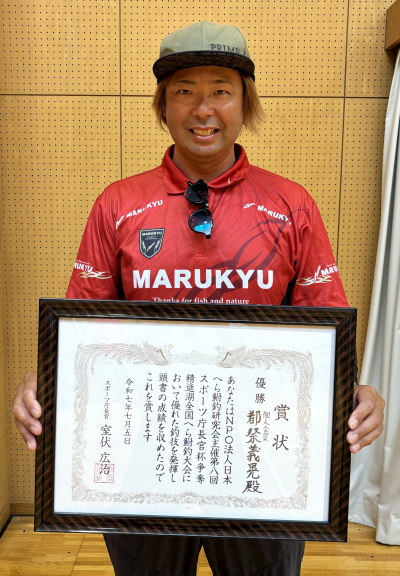 PRIME
MARUKYU
MARUKYU
MARUKYU
MARUKYU
MARUKYU
Thanks for fish and nature
賞状
優勝
都祭義晃殿
あなたはNPO法人日本
へら鮒釣研究会主催第八回
スポーツ庁長官杯争奪
精進湖全国へら鮒釣大会に
おいて優れた釣技を発揮し
頭書の成績を収めたので
これを賞します
令和七年七月五日
スポーツ庁長官
室伏広治